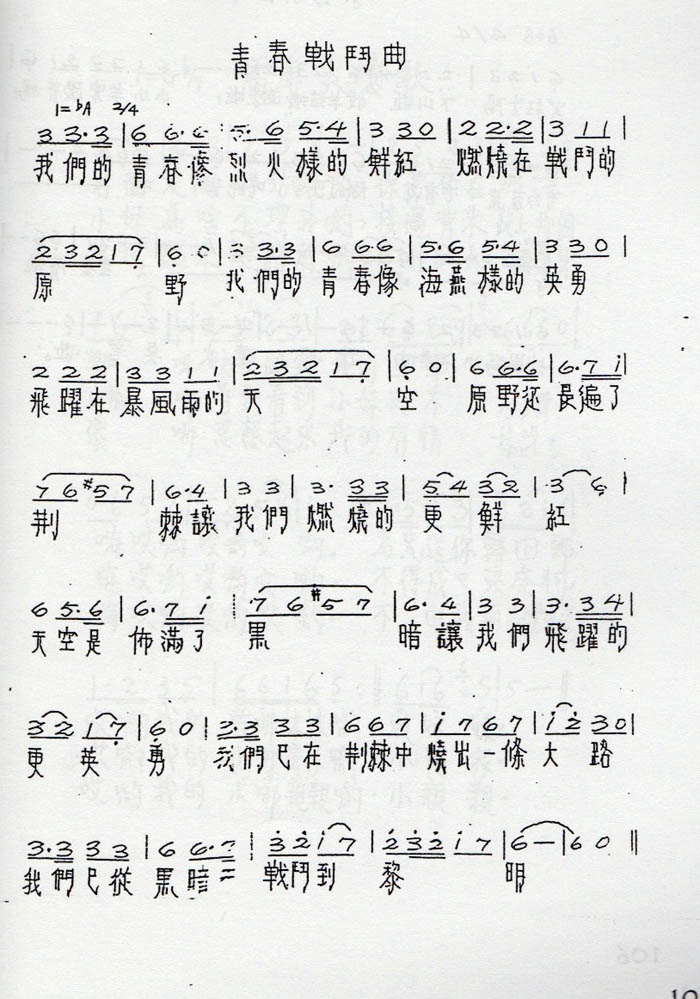 青春戰鬥曲
1=♭A 2/4
3 3·3 | 6 6·6 | 5·6 5·4 | 3 3 0 | 2 2·2 | 3 1 1 |
我們的 青春像 烈火樣的 鮮紅 燃燒在 戰鬥的
2 3 2 1 7 | 6 0 3 3·3 | 6 6·6 | 5·6 5·4 | 3 3 0 |
原 野 我們的 青春像 海燕樣的 英勇
2 2 2 | 3 3 1 1 | 2 3 2 1 7 | 6 0 | 6 6·6 | 6·7 i |
飛躍在 暴風雨的 天 空 原野是 長遍了
7 6 #5 7 | 6·4 | 3 3 | 3· 3 3 | 5 4 3 2 | 3 6 |
荆 棘讓 我們 燃燒的 更 鮮 紅
6 5·6 | 6·7 i | 7 6 #5 7 | 6·4 | 3 3 | 3·3 4 |
天空是 佈滿了 黑 暗讓 我們 飛躍的
3 2 1 7 | 6 0 | 3·3 3 3 | 6 6 7 | i 7 6 7 | i 2 3 0 |
更 英 勇 我們已在 荆棘中 燒出一條 大 路
3·3 3 3 | 6 6·7 | 3 2 i 7 | 2 3 2 i 7 | 6 — | 6 0 ‖
我們已從 黑暗 戰鬥到 黎 明
106